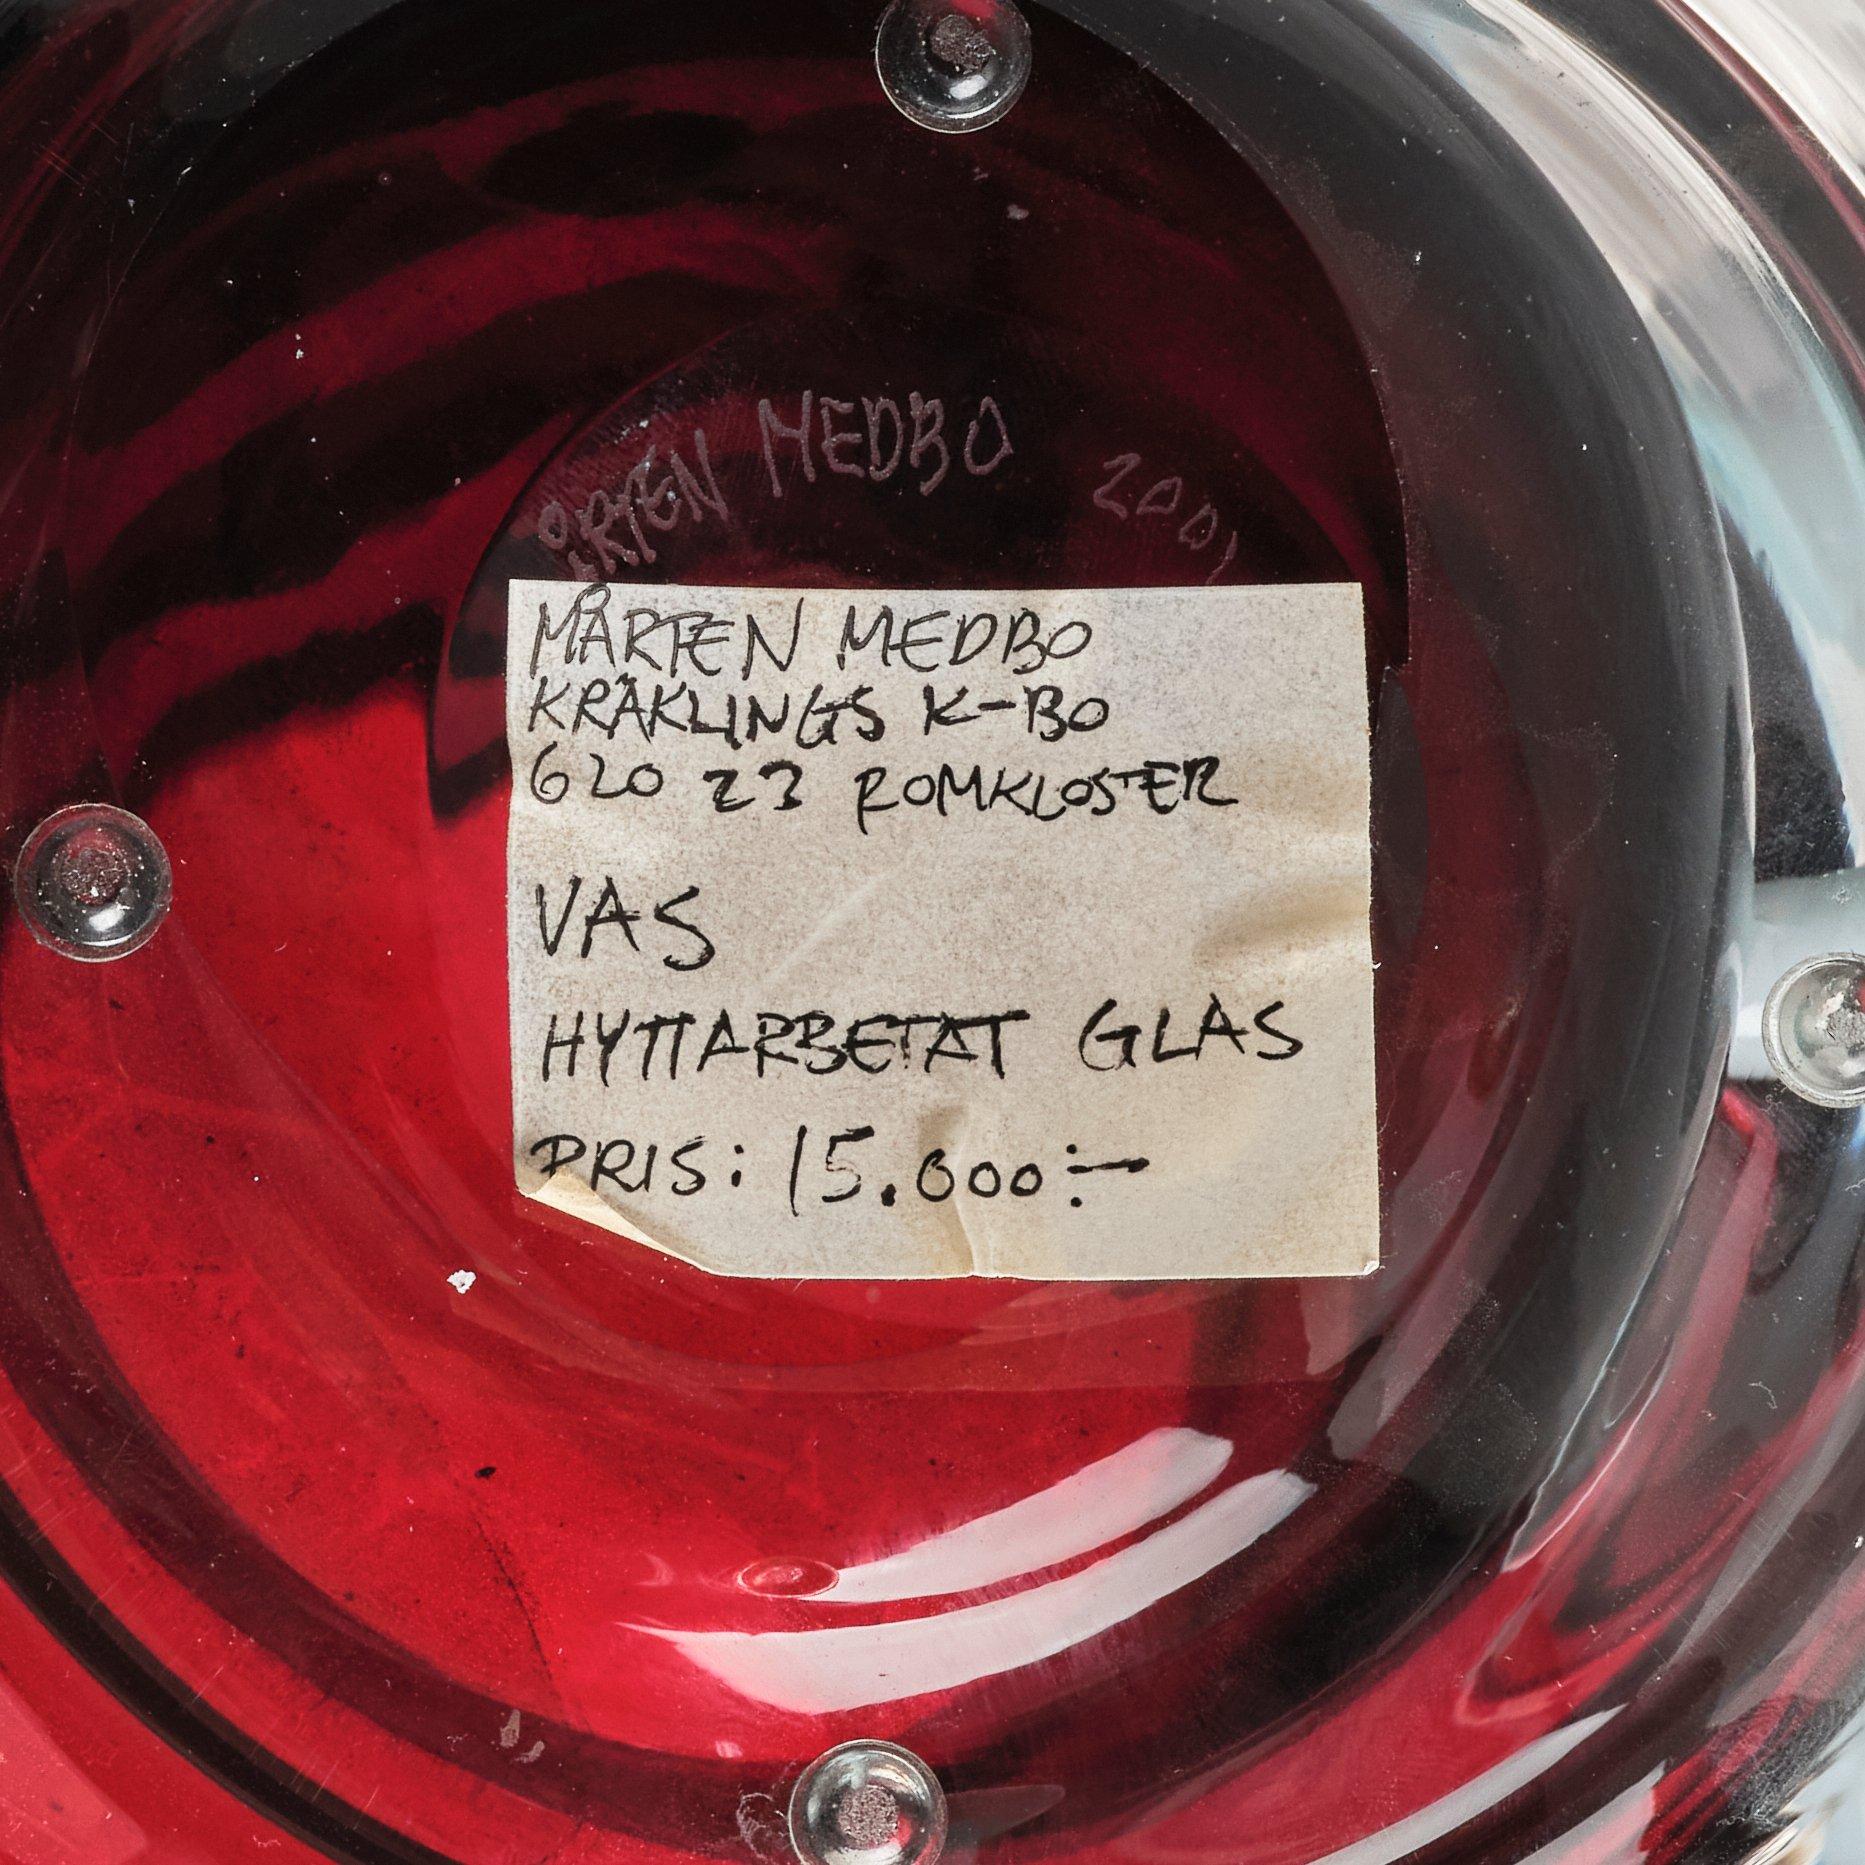 ÅRTEN MEDBO 2001
MÅRTEN MEDBO
KRÄKLINGS K-BO
620 23 ROMKLOSTER
VAS
HYTTARBETAT GLAS
PRIS: 15.000:-